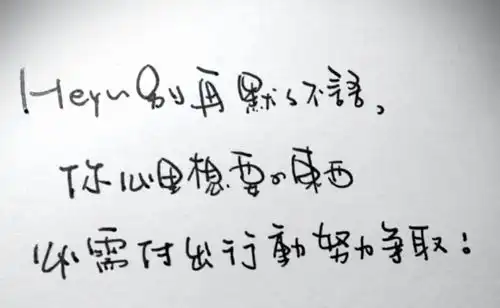 Hey~別再默默不語,
你心里想要的東西
必需付出行動努力爭取!